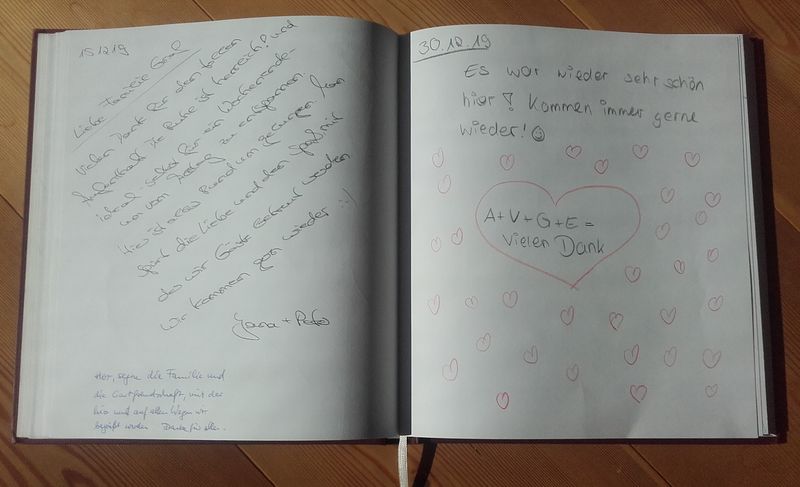 15.12.19
Liebe Familie Graf
Vielen Dank für den tollen
Aufenthalt. Die Ruhe ist herrlich! und
ideal selbst für ein Wochenende
um vom Alltag zu entspannen.
Hier ist alles rund um gelungen. Man
spürt die Liebe und den Spaß mit
das wir Gäste betreut werden
Wir kommen gern wieder :-)
Jana +
Herr, segne die Familie und
die Gastfreundschaft, mit der
hier und auf allen Wegen wir
begrüßt werden Danke für alles.
30.12.19
Es war wieder sehr schön
hier! Kommen immer gerne
wieder! ☺
A+V+G+E =
Vielen Dank